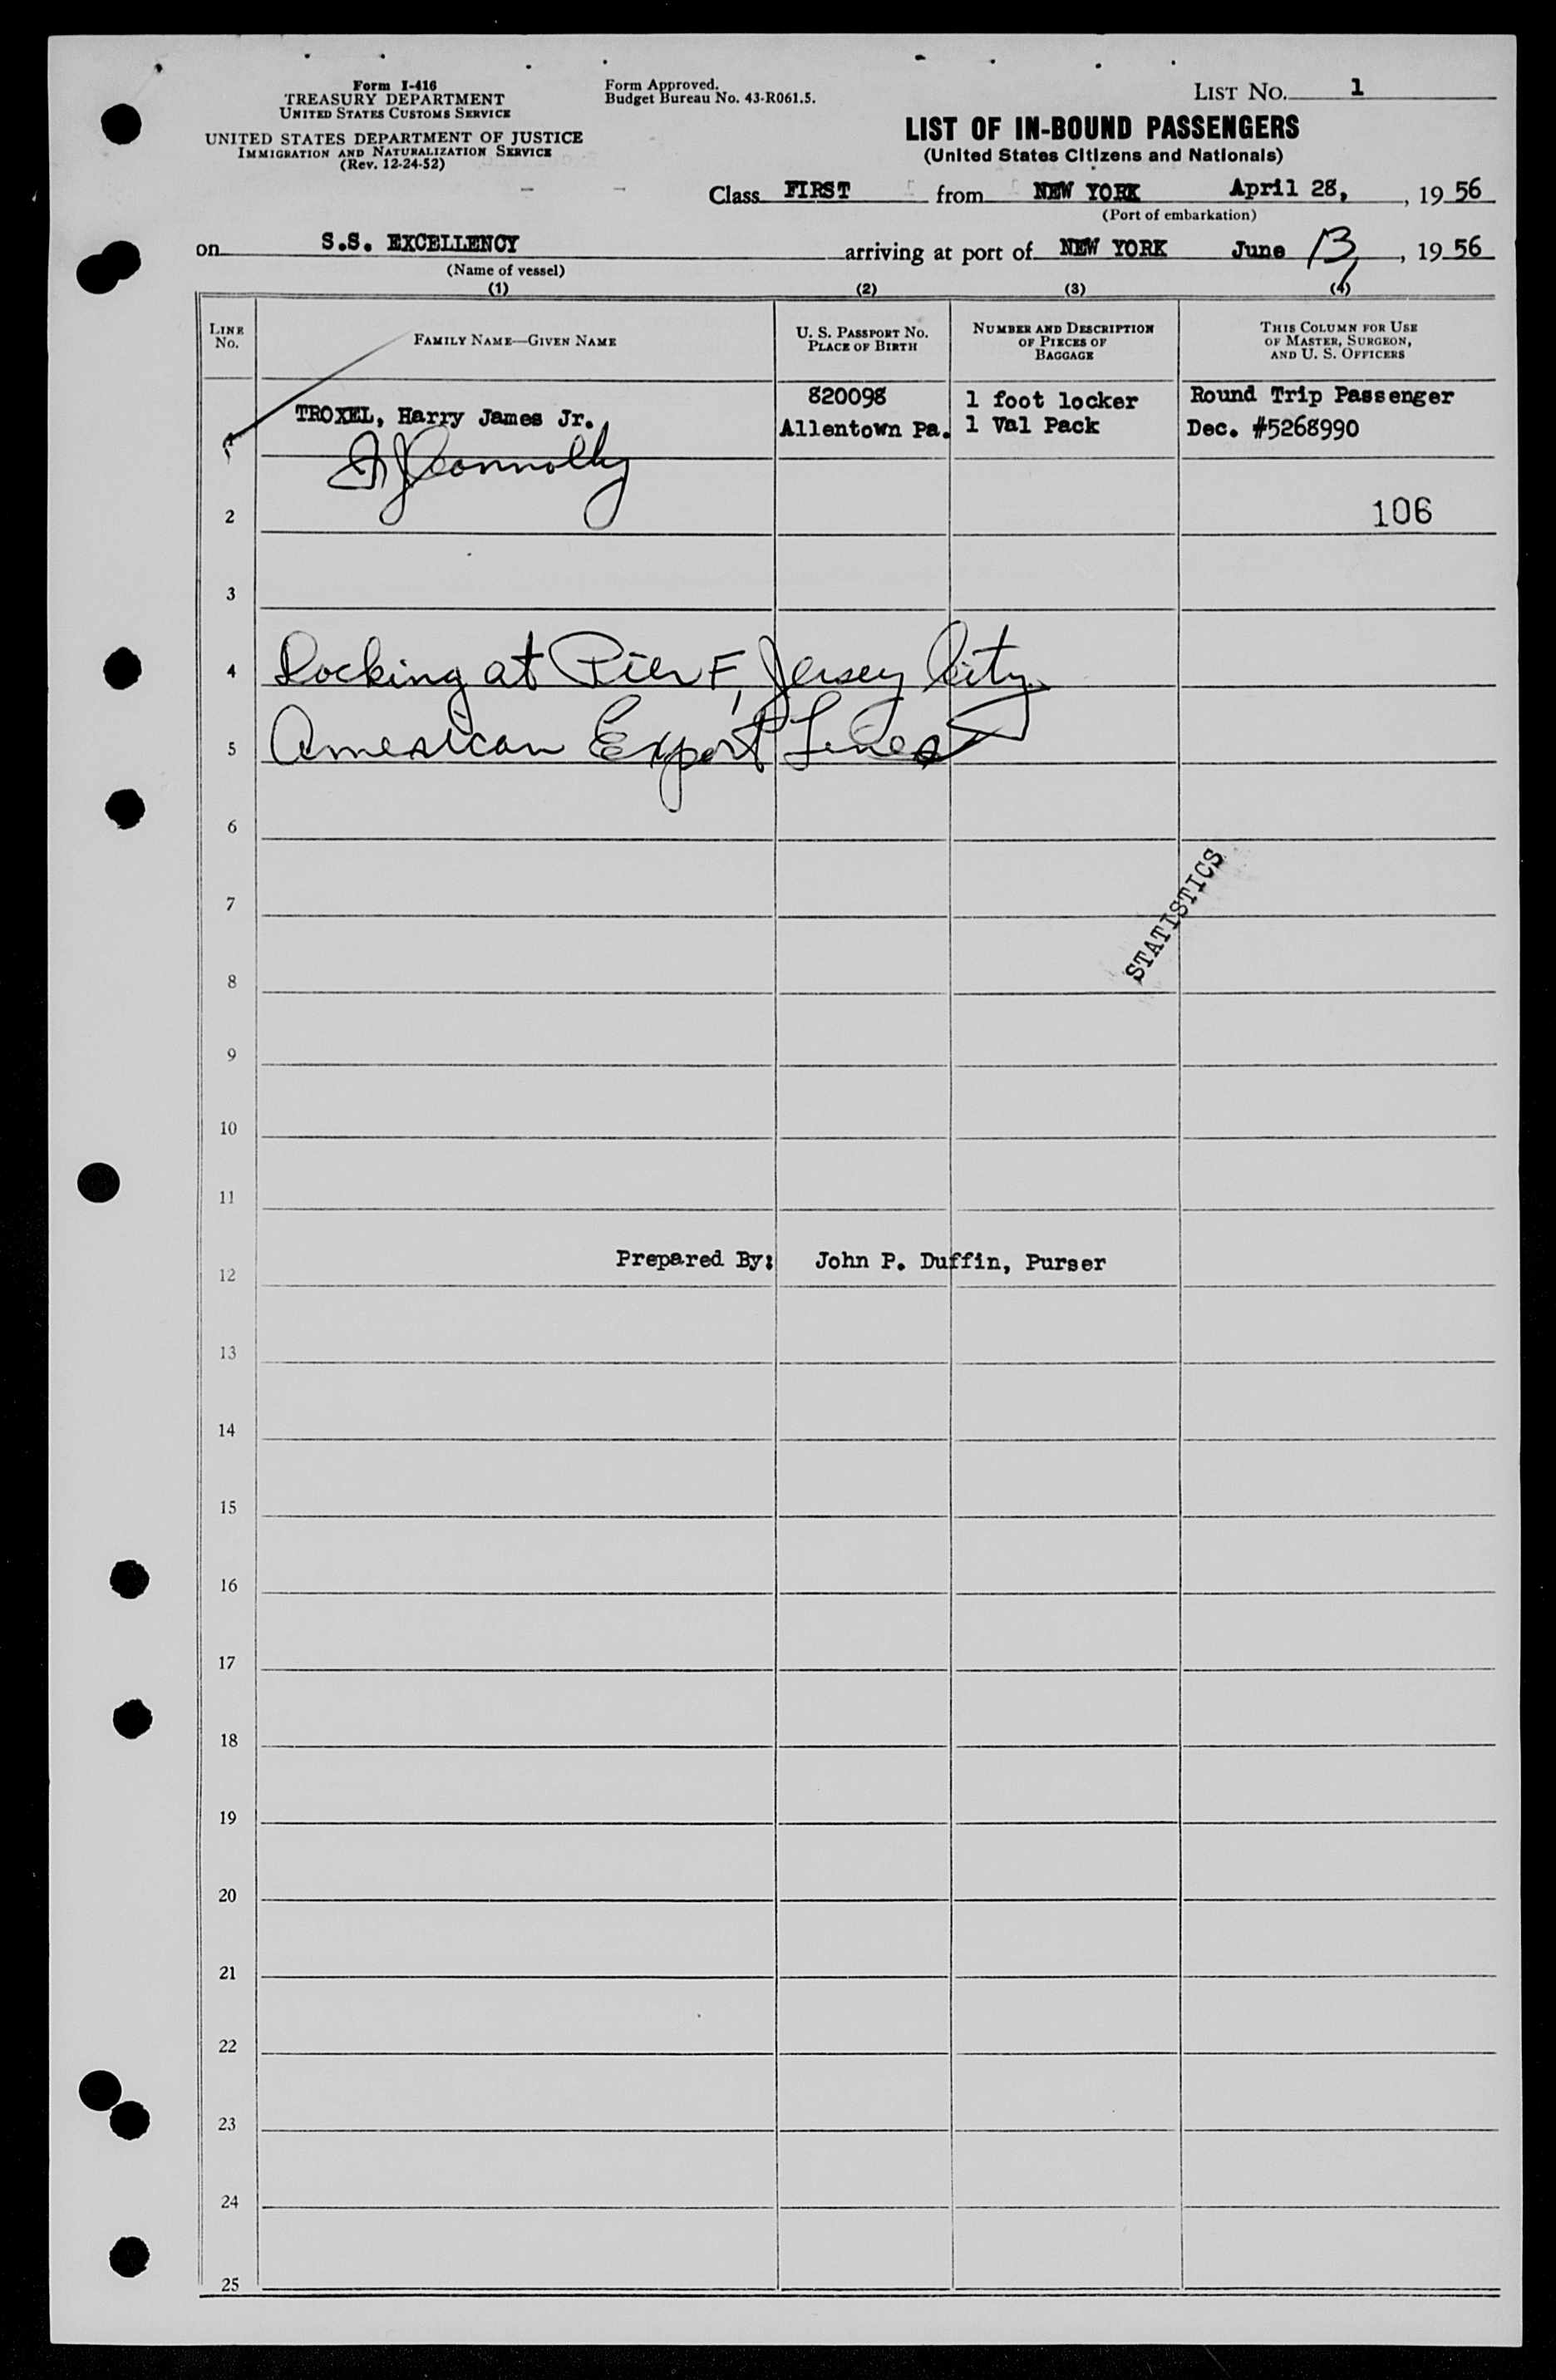 Form I-416
TREASURY DEPARTMENT
UNITED STATES CUSTOMS SERVICE
UNITED STATES DEPARTMENT OF JUSTICE
IMMIGRATION AND NATURALIZATION SERVICE
(Rev. 12-24-52)
Form Approved.
Budget Bureau No. 43-R061.5.
LIST NO. 1
LIST OF IN-BOUND PASSENGERS
(United States Citizens and Nationals)
Class FIRST from NEW YORK April 28, , 19 56
(Port of embarkation)
on S.S. EXCELLENCY arriving at port of NEW YORK June 13, , 19 56
(Name of vessel)
(1) (2) (3) (4)
LINE No. FAMILY NAME—GIVEN NAME U. S. PASSPORT NO. PLACE OF BIRTH NUMBER AND DESCRIPTION OF PIECES OF BAGGAGE THIS COLUMN FOR USE OF MASTER, SURGEON, AND U. S. OFFICERS
TROXEL, Harry James Jr. 820098 1 foot locker Round Trip Passenger
Allentown Pa. 1 Val Pack Dec. #5268990
Connolly
2 106
3
4 Docking at Pier F, Jersey City
5 American Export Lines
6
7
STATISTICS
8
9
10
11
Prepared By: John P. Duffin, Purser
12
13
14
15
16
17
18
19
20
21
22
23
24
25